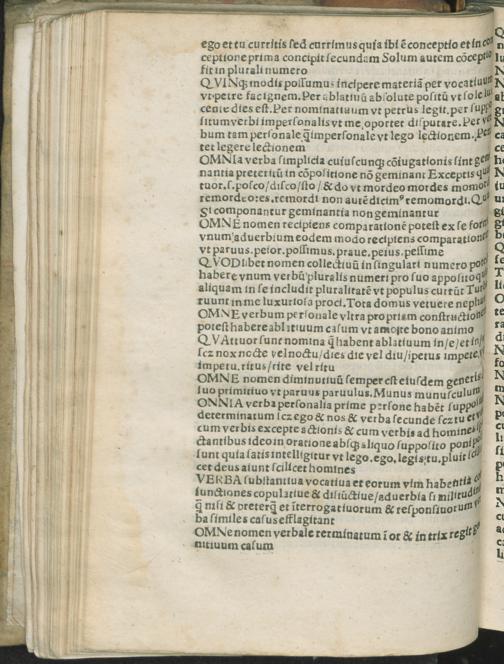 ego et tu curritis sed currimus quia ibi ē conceptio et in con
ceptione prima concipit secundam Solum autem cōceptio
fit in plurali numero
QVINqȝ modis possumus incipere materiā per vocatiuum
vt petre fac ignem. Per ablatiuū absolute positū vt sole lu
cente dies est. Per nominatiuum vt petrus legit. per supp
situm verbi impersonalis vt me oportet disputare. Per ver
bum tam personale q̄ impersonale vt lego lectionem. Per
tet legere lectionem
OMNIa verba simplicia cuiuscunqȝ cōiugationis sint gem
nantia preteritū in cōpositione nō geminant Exceptis qua
tuor. s. posco/disco/sto/& do vt mordeo mordes momord
remordeo:es.remordi non autē dicimꝰ remomordi. Quia
Si componantur geminantia non geminantur
OMNE nomen recipiens comparationē potest ex se form
vnum aduerbium eodem modo recipiens comparationem
vt paruus. peior. possimus. praue, peius. pessime
QVODlibet nomen collectiuū in singulari numero potest
habere vnum verbū pluralis numeri pro suo apposito qu
aliquam in se includit pluralitatē vt populus currūt Turba
ruunt in me luxuriosa proci. Tota domus vetuere nephas
OMNE verbum personale vltra propriam constructionem
potest habere ablatiuum casum vt amo te bono animo
QVAttuor sunt nomina q̄ habent ablatiuum in/e/et in/i/
scȝ nox nocte vel noctu/dies die vel diu/ipetus impete. v
impetu. ritus/rite vel ritu
OMNE nomen diminutiuū semper est eiusdem generis
suo primitiuo vt paruus paruulus. Munus munusculum
ONNIA verba personalia prime persone habēt suppositum
determinatum scȝ ego & nos & verba secunde scȝ tu et v
cum verbis excepte actionis & cum verbis ad homines sp
ctantibus ideo in oratione absqȝ aliquo supposito poni pos
sunt quia satis intelligitur vt lego. ego, legis. tu. pluit scili
cet deus aiunt scilicet homines
VERBA substantiua vocatiua et eorum vim habentia con
iunctiones copulatiue & disiūctiue/aduerbia similitudinis
q̄ nisi & preterq̄ et īterrogatiuorum & responsiuorum ver
ba similes casus efflagitant
OMNe nomen verbale terminatum ī or & in trix regit ge
nitiuum casum